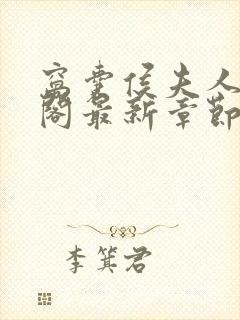 窝囊侯夫人
阁最新章节
李箕君